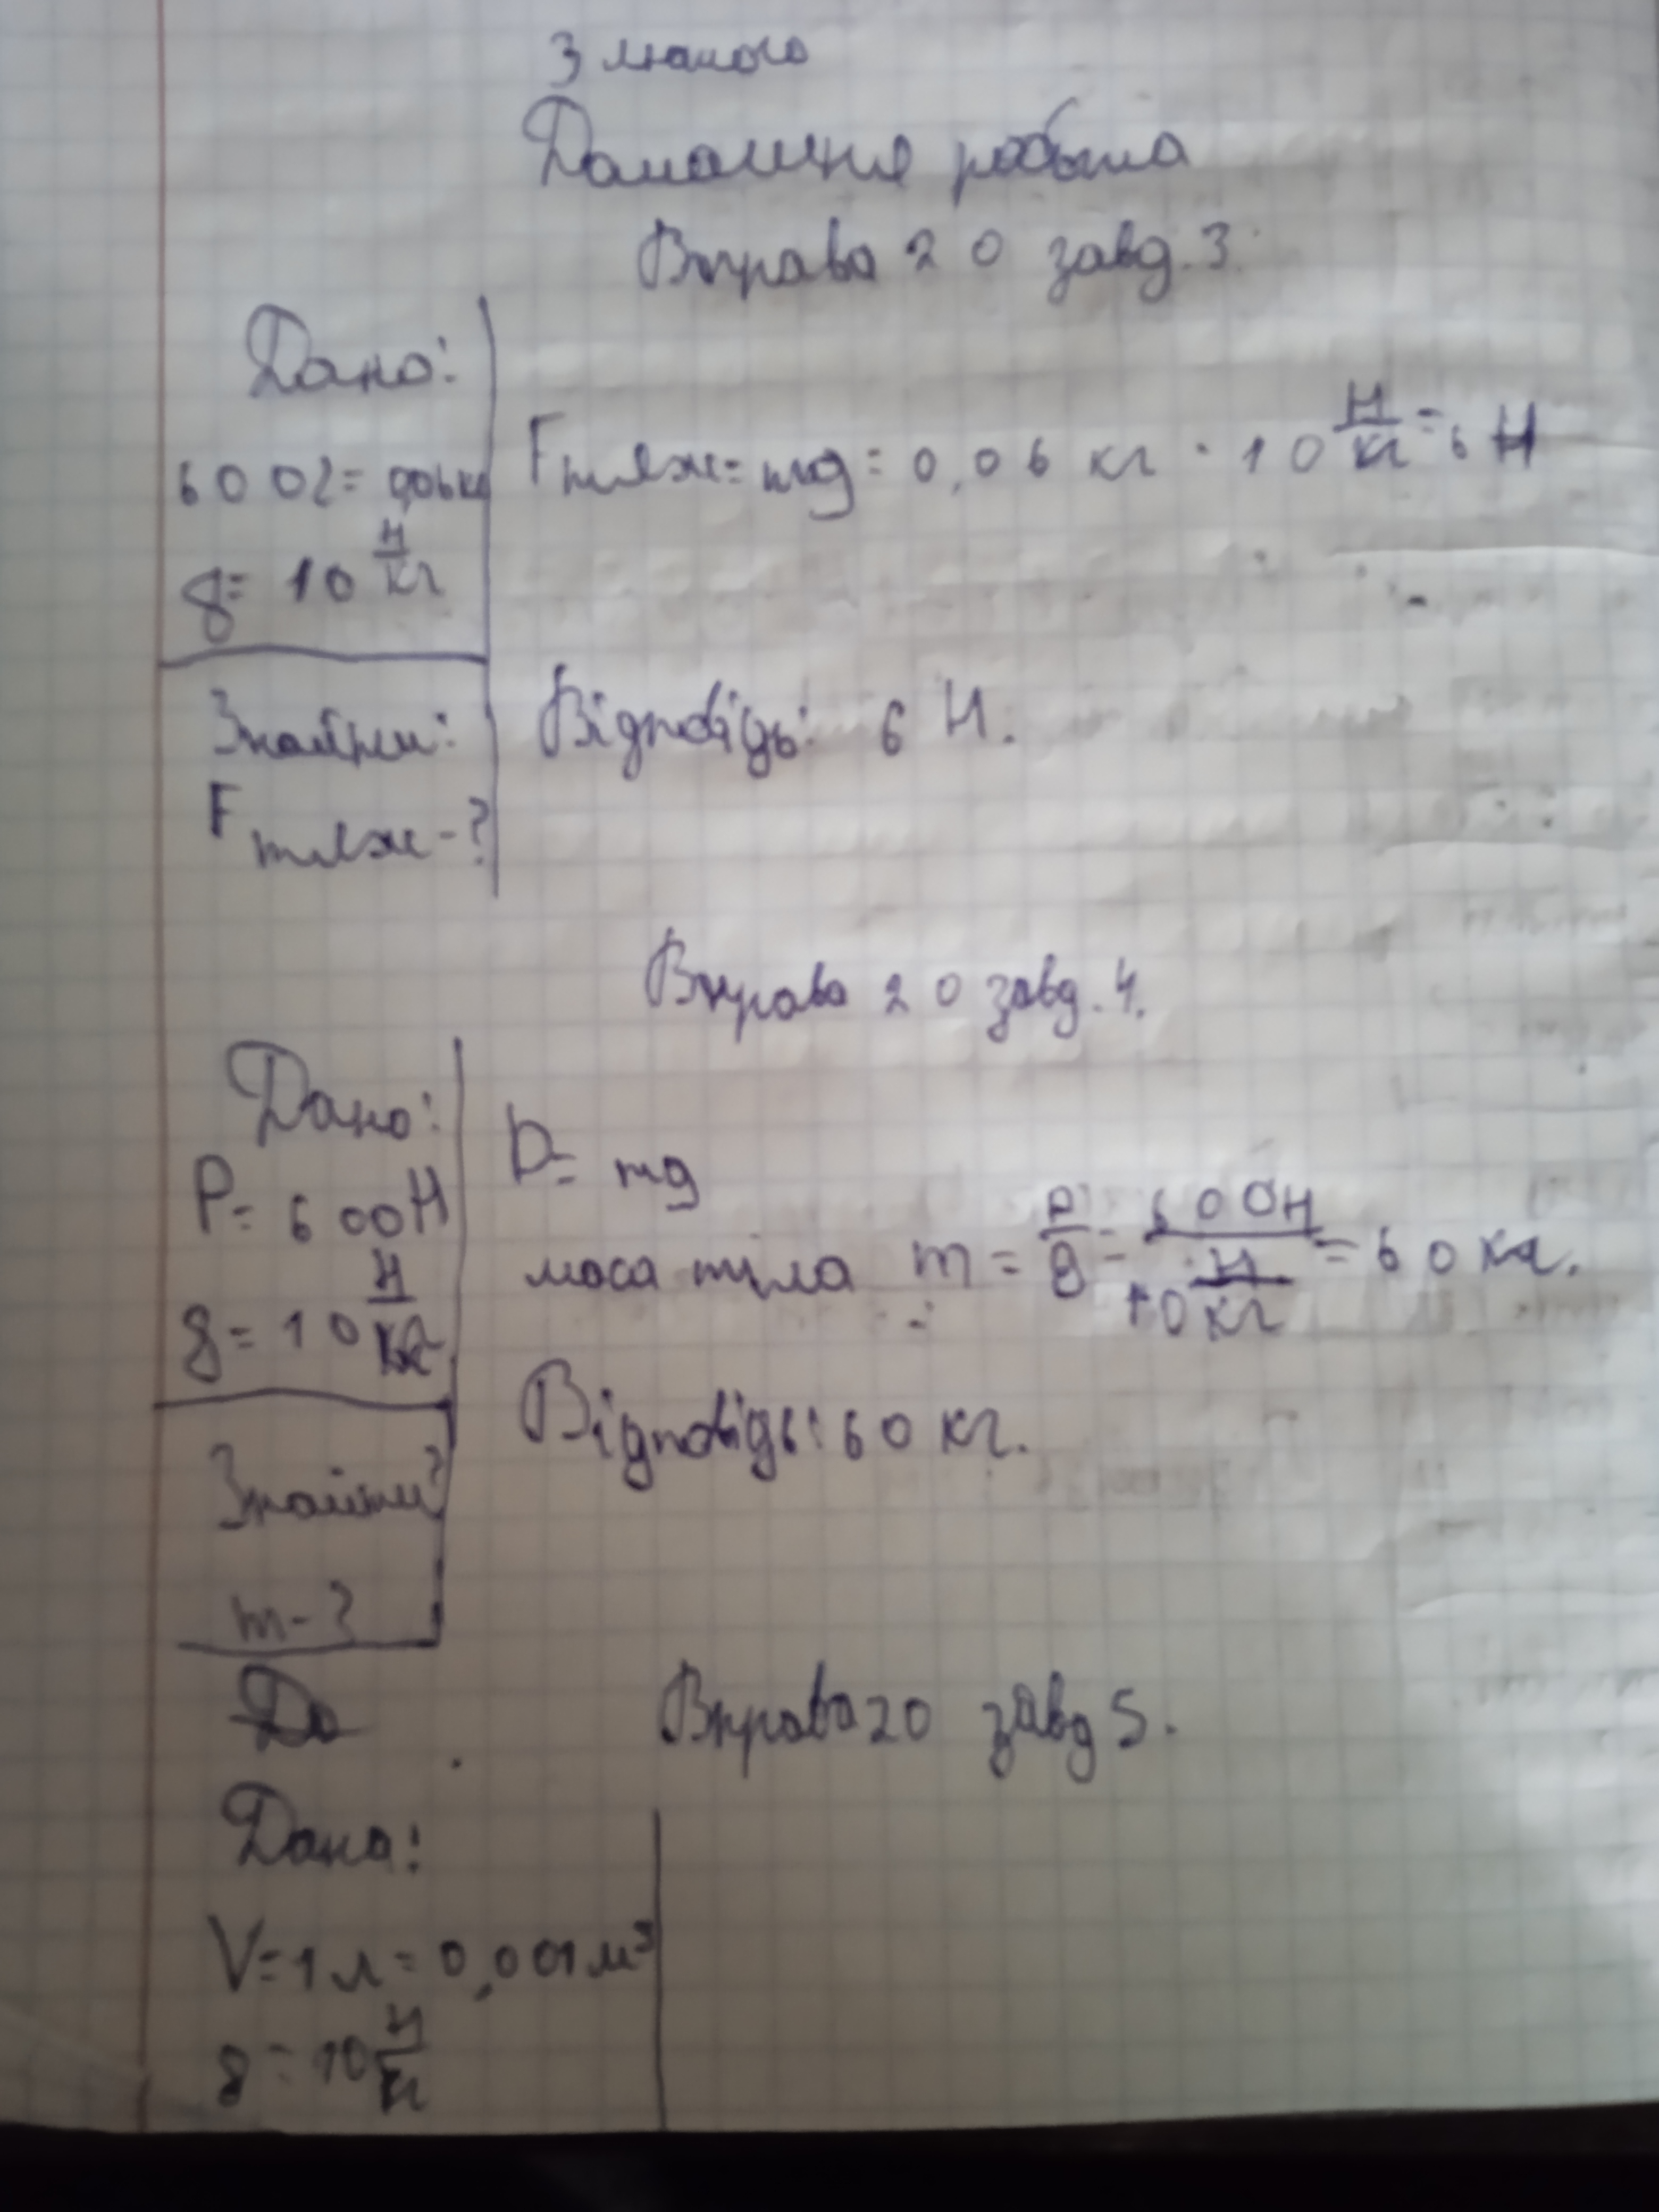 3 лютого
Домашня робота
Вправа 20 завд. 3.
Дано:
600г = 0,06кг
g = 10 Н/кг
Fтяж = mg = 0,06 кг · 10 Н/кг = 6 Н
Знайти:
Fтяж - ?
Відповідь: 6 Н.
Вправа 20 завд. 4.
Дано:
P = 600Н
g = 10 Н/кг
P = mg
маса тіла m = P/g = 600Н/10 Н/кг = 60 кг.
Знайти:
m - ?
Відповідь: 60 кг.
До
Вправа 20 завд 5.
Дано:
V = 1 л = 0,001 м³
g = 10 Н/кг